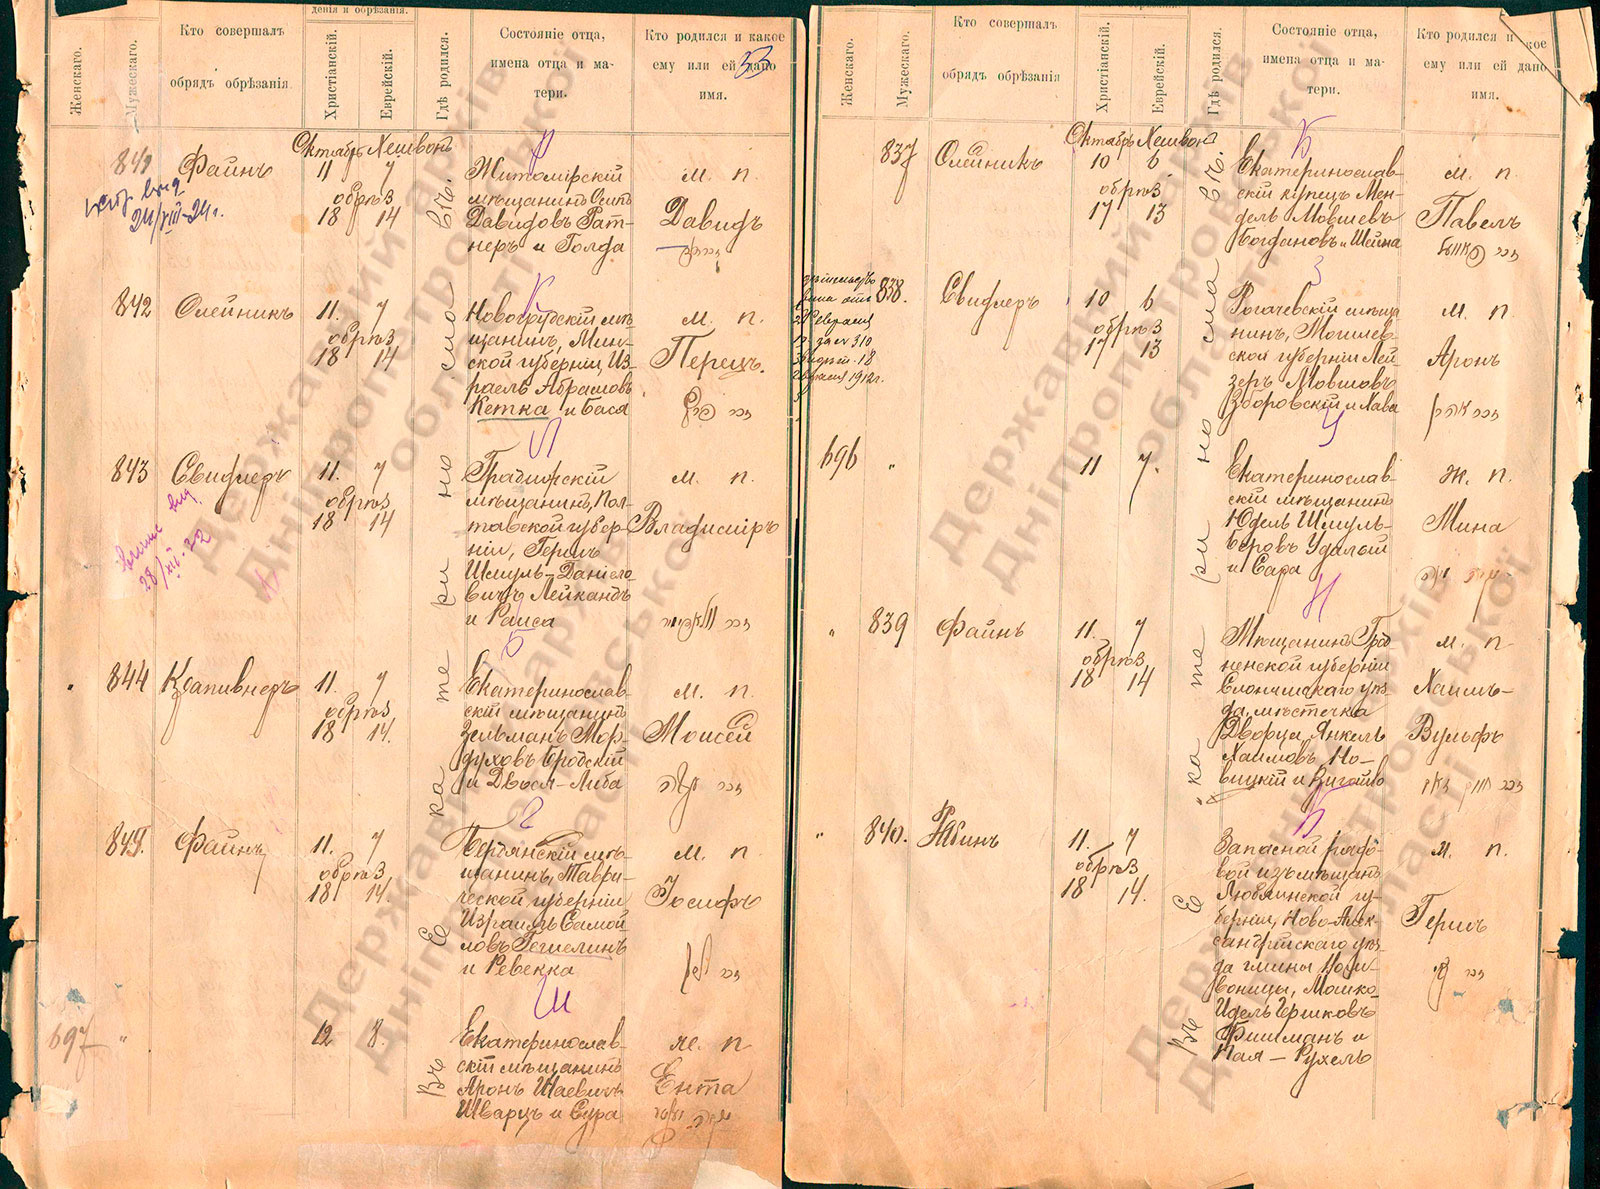 дения и обрѣзания.
Женскаго.
Мужескаго.
Кто совершалъ
обрядъ обрѣзанія
Христіанскій.
Еврейскій.
Гдѣ родился.
Состояніе отца,
имена отца и ма-
тери.
Кто родился и какое
ему или ей дано
имя.
53
Октябрь Хешвонъ
841 Файнъ 11 7
обрѣз
18 14
24/VIII-24г.
Житомірскій
мѣщанинъ Осипъ
Давидовъ Рат-
неръ и Голда
м. п.
Давидъ
842 Олейникъ 11. 7
обрѣз
18 14
Новогрудскій мѣ-
щанинъ, Мин-
ской губерніи, Из-
раель Абрамовъ
Кетка и Бася
м. п.
Перецъ.
843 Свифлеръ 11. 7
обрѣз
18 14
28/XII-22
мѣщанинъ, Пол-
тавской губер-
ніи, Гершъ
Шмуль-Даніело-
вичъ Лейкандъ
и Раиса
м. п.
Владиміръ
844 Крапивнеръ 11. 7
обрѣз
18 14.
Екатеринослав-
скій мѣщанинъ
Зельманъ Мор-
духовъ Бродскій
и Двося-Либа
м. п.
Моисей
845. Файнъ 11. 7
обрѣз
18 14.
Бердянскій мѣ-
щанинъ, Таври-
ческой губерніи
Израиль Самой-
ловъ Гешелинъ
и Ревекка
м. п.
Іосифъ
697 " 12 8.
Екатеринослав-
скій мѣщанинъ
Аронъ Шаевичъ
Шварцъ и Сура
ж. п
Ента
Въ Екатеринославъ.
Женскаго.
Мужескаго.
Кто совершалъ
обрядъ обрѣзанія
Христіанскій.
Еврейскій.
Гдѣ родился.
Состояніе отца,
имена отца и ма-
тери.
Кто родился и какое
ему или ей дано
имя.
Октябрь Хешвонъ
837 Олейникъ 10 6
обрѣз
17 13
Екатеринослав-
скій купецъ Мен-
дель Мовшевъ
Богдановъ и Шейна
м. п.
Павелъ
פאוועל
838. Свифлеръ 10 6
обрѣз
17 13
за № 310
1912г.
Рогачевскій мѣща
нинъ, Могилев-
ской губерніи Лей-
зеръ Мовшовъ
Зборовскій и Хава
м. п.
Аронъ
אהרן
696 " 11 7.
Екатеринослав-
скій мѣщанинъ
Юдель Шмуль-
веровъ Удалой
и Сара
ж. п.
Мина
" 839 Файнъ 11. 7
обрѣз
18 14
Мѣщанинъ Грод
ненской губерніи
Слонимскаго уѣз-
да, мѣстечка
Дворца, Янкель
Хаимовъ Но-
вицкій и
м. п
Хаимъ-
Вульфъ
" 840. Рабинъ 11. 7
обрѣз
18 14.
Запасной рядо-
вой изъ мѣщанъ
Люблинской гу-
берніи, Ново-Алек-
сандрійскаго уѣз-
да гмины
Мошко-
Идель Гершковъ
Фишманъ и
Хая-Рухель
м. п.
Гершъ
Въ Екатеринославъ.
Державний архів
Дніпропетровської
області